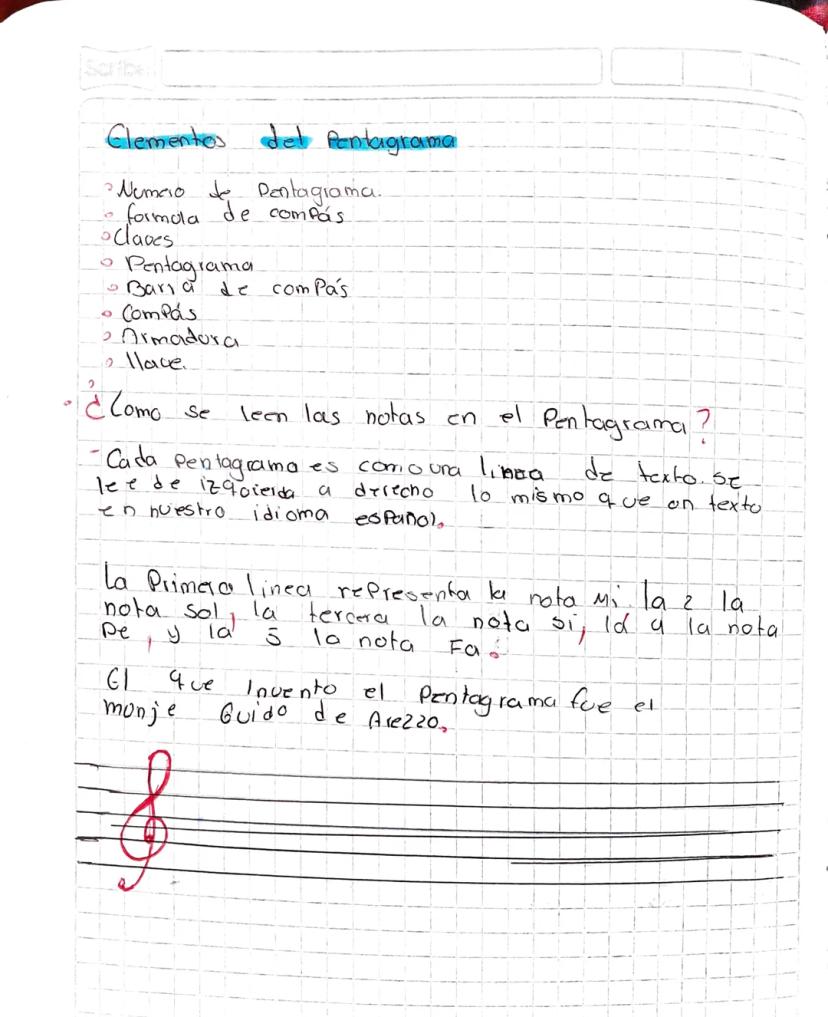 Scribe
Elementos del Pentagrama
Numero de Pentagrama.
formula de compás
Claves
Pentagrama
Barra de comPás
Compás
Armadura
llave.
¿Como se leen las notas en el Pentagrama?
- Cada pentagrama es como una linea de texto. se
lee de izquierda a derecho lo mismo que un texto
en nuestro idioma español.
La Primera linea representa la nota Mi, la 2 la
nota sol, la tercera la nota si, la 4 la nota
Re, y la 5 la nota Fa.
El que Invento el pentagrama fue el
monje Guido de Arezzo.